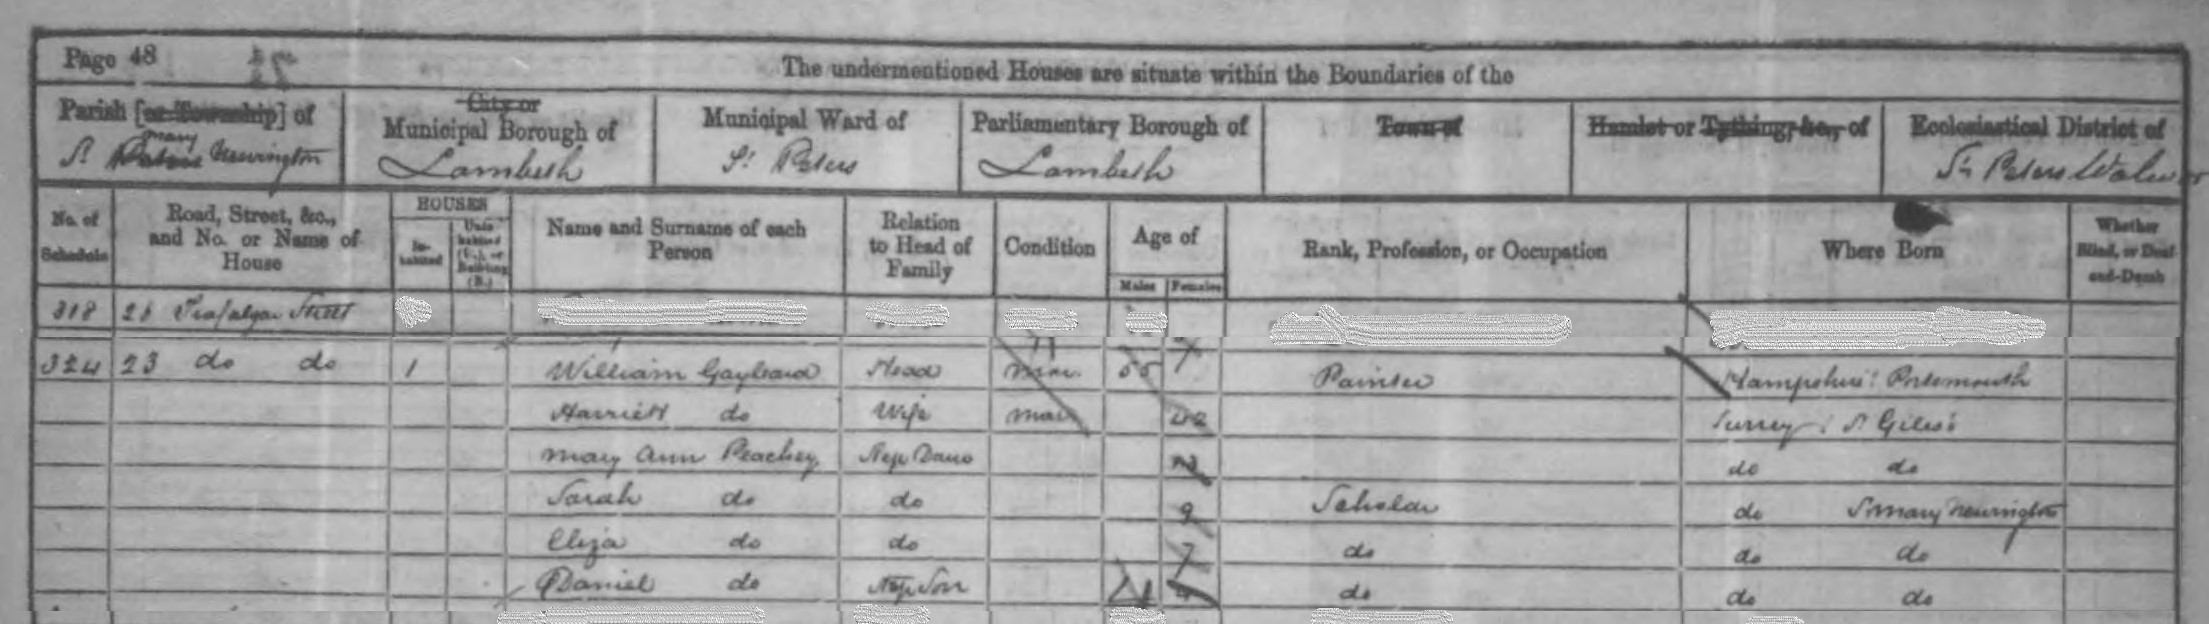 Page 48
The undermentioned Houses are situate within the Boundaries of the
Parish [or Township] of
St Mary Newington
City or Municipal Borough of
Lambeth
Municipal Ward of
St Peters
Parliamentary Borough of
Lambeth
Town of
Hamlet or Tything, &c., of
Ecclesiastical District of
St Peters Walw
No. of Schedule
Road, Street, &c., and No. or Name of House
HOUSES
In-habited
Unin-habited (U.), or Building (B.)
Name and Surname of each Person
Relation to Head of Family
Condition
Age of
Males Females
Rank, Profession, or Occupation
Where Born
Whether Blind, or Deaf-and-Dumb
318 Trafalgar Street
324 23 do do 1 William Gayleard Head Mar 55 Painter Hampshire Portsmouth
Harriett do Wife Mar 42 Surrey St Giles's
Mary Ann Peachey do do
Sarah do do 9 Scholar do St Mary Newington
Eliza do do 7 do do do
Daniel do Son 4 do do do